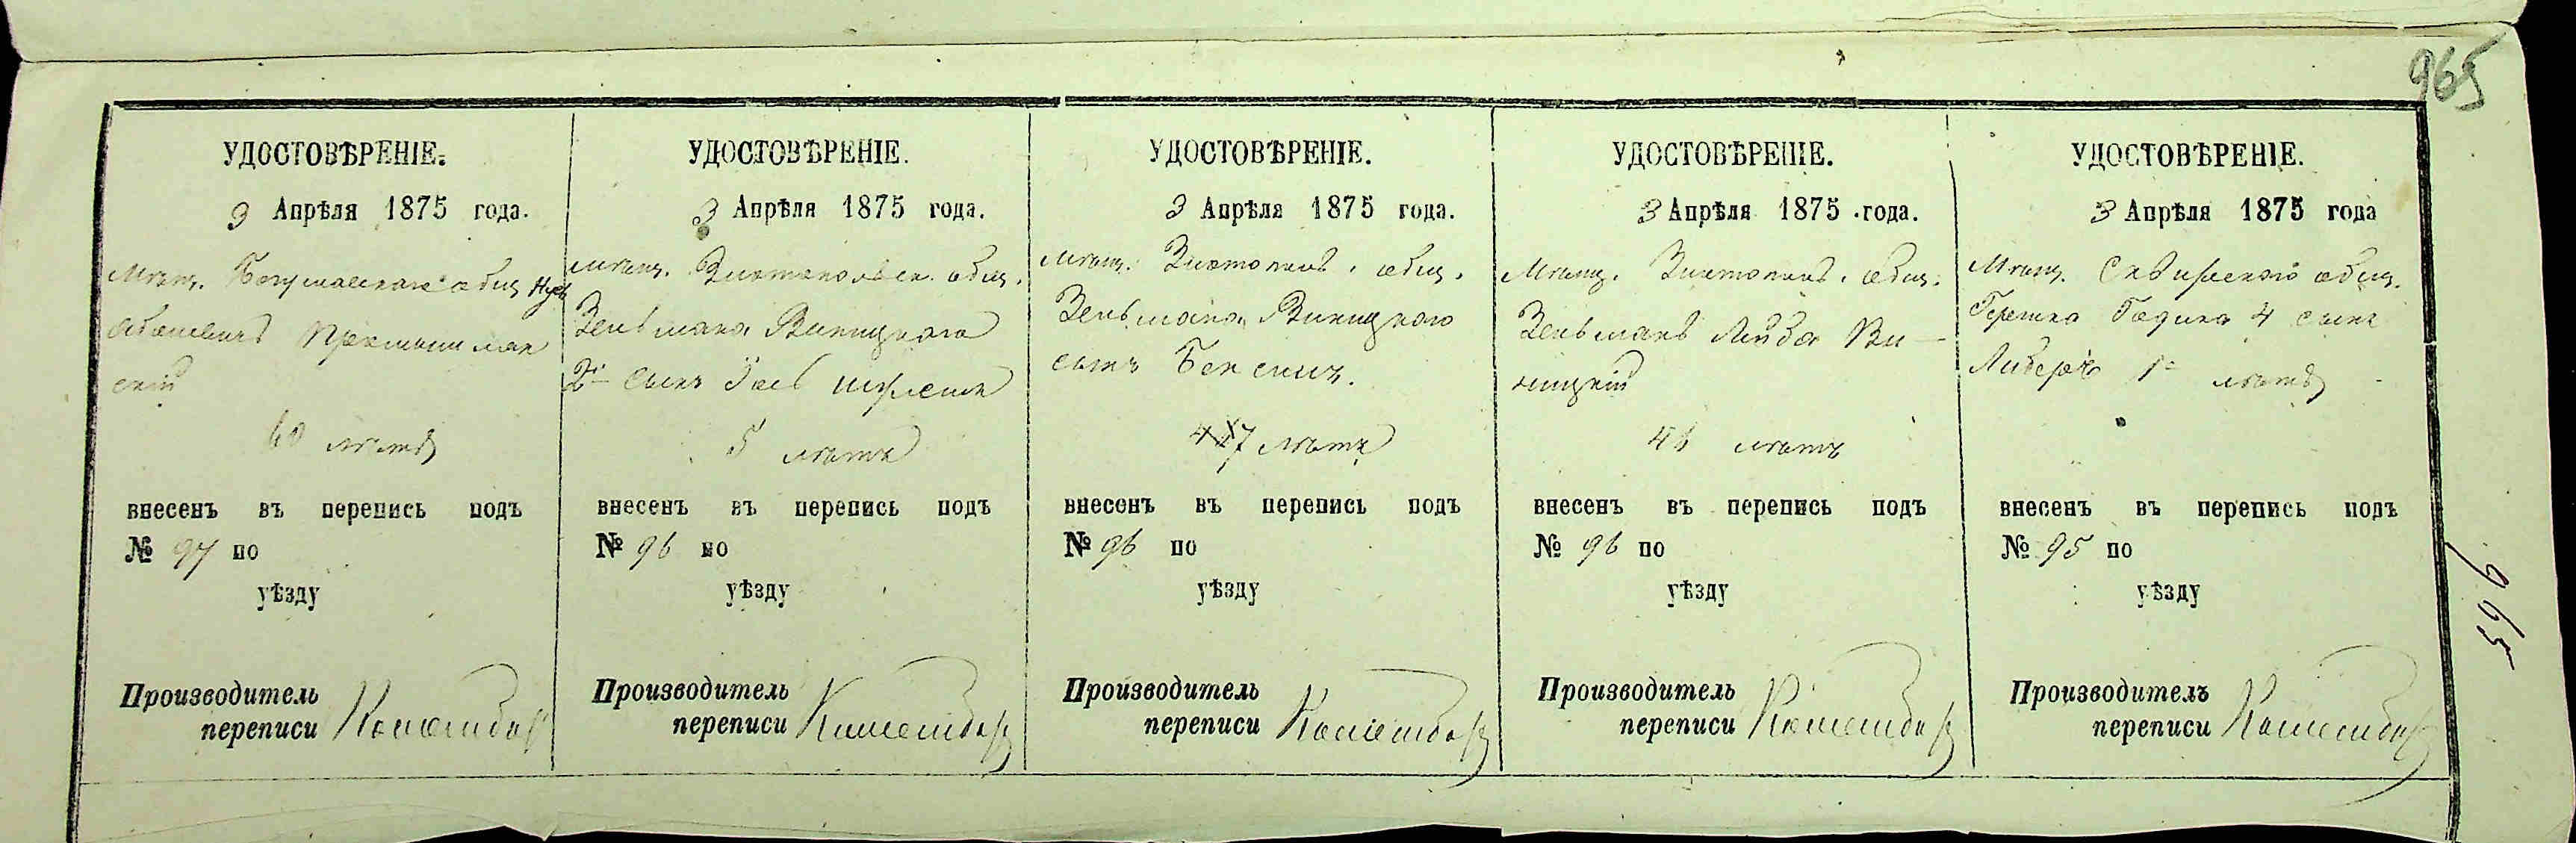 965
УДОСТОВѢРЕНІЕ.
3 Апрѣля 1875 года.
Мѣщ. Богуславскаго общ.
скій
60 лѣтъ
внесенъ въ перепись подъ
№ 97 по
уѣзду
Производитель
переписи
УДОСТОВѢРЕНІЕ.
3 Апрѣля 1875 года.
мѣщ. Златопольск. общ.
Зельмана Виницкаго
2й сынъ
5 лѣтъ
внесенъ въ перепись подъ
№ 96 по
уѣзду
Производитель
переписи
УДОСТОВѢРЕНІЕ.
3 Апрѣля 1875 года.
мѣщ. Златопол. общ.
Зельмана Виницкаго
сынъ
7 лѣтъ
внесенъ въ перепись подъ
№ 96 по
уѣзду
Производитель
переписи
УДОСТОВѢРЕНІЕ.
3 Апрѣля 1875 года.
Мѣщ. Златопол. общ.
Зельманъ Лейба Ви-
ницкій
46 лѣтъ
внесенъ въ перепись подъ
№ 96 по
уѣзду
Производитель
переписи
УДОСТОВѢРЕНІЕ.
3 Апрѣля 1875 года
Мѣщ. Сквирскаго общ.
4 сынъ
лѣтъ
внесенъ въ перепись подъ
№ 95 по
уѣзду
Производитель
переписи
965